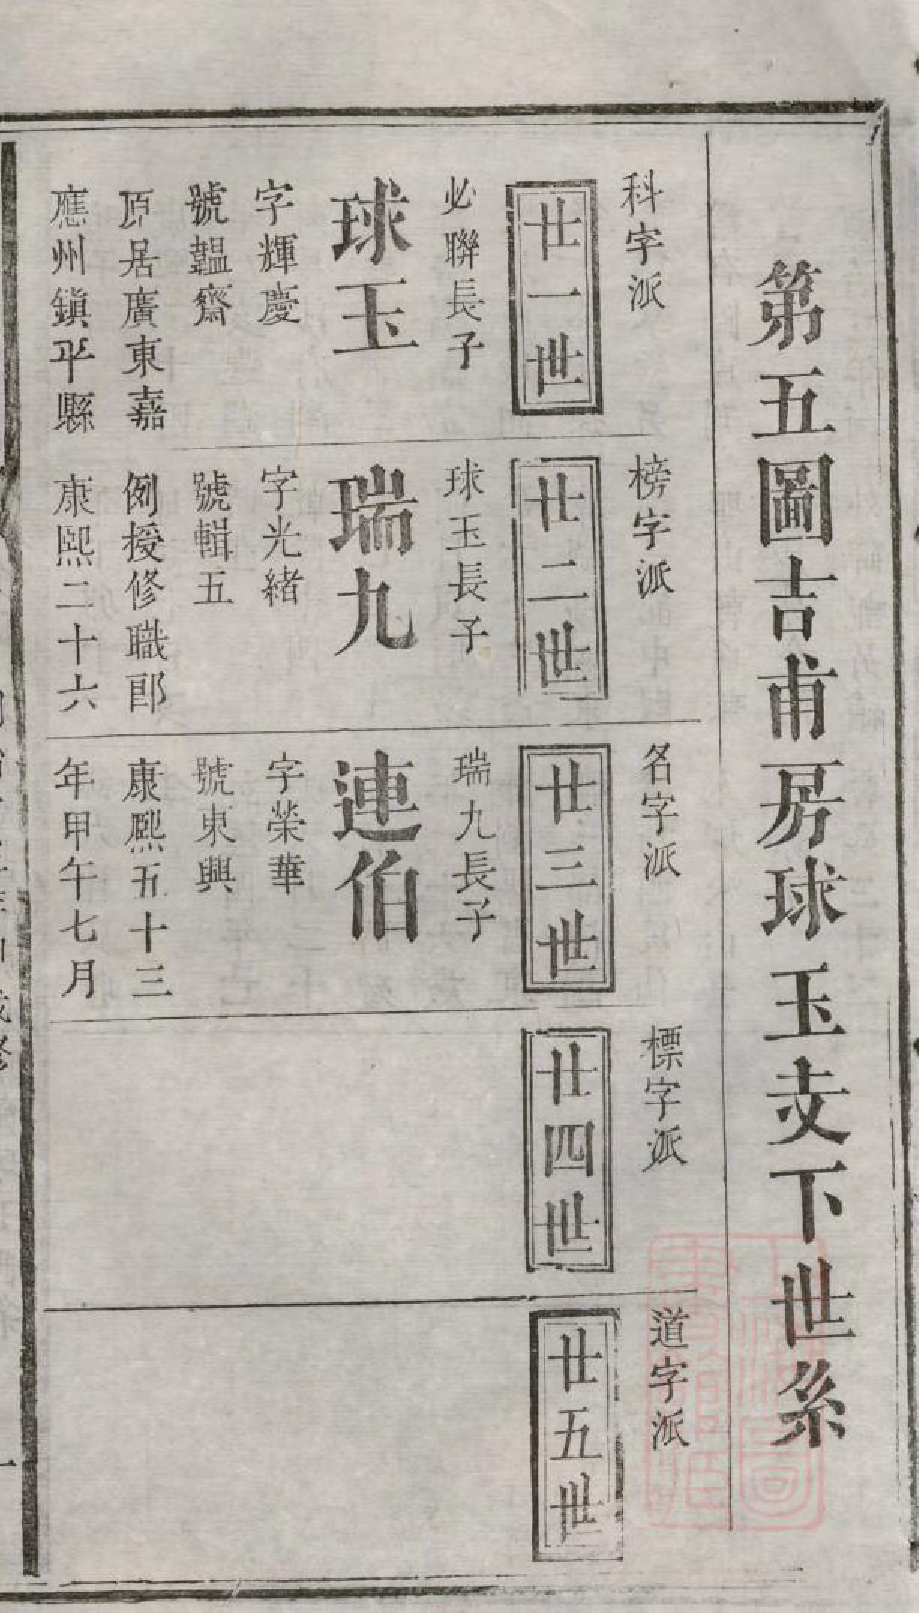 第五圖吉甫房球玉支下世系
科字派
廿一世
必聯長子
球玉
字輝慶
號韞齋
原居廣東嘉
應州鎮平縣
榜字派
廿二世
球玉長子
瑞九
字光緒
號輯五
例授修職郎
康熙二十六
名字派
廿三世
瑞九長子
連伯
字榮華
號東興
康熙五十三
年甲午七月
標字派
廿四世
道字派
廿五世